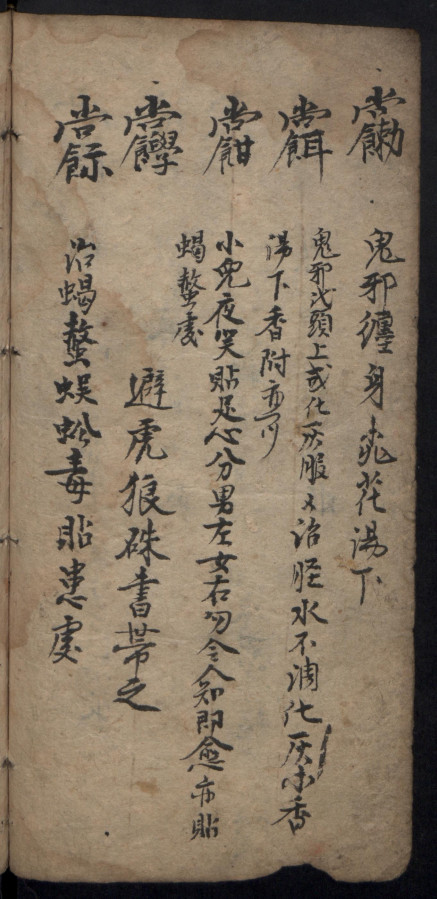 鬼邪纏身桃花湯下
鬼邪頭上或化灰服又治胫水不調化灰香
湯下香附亦可
小兒夜哭貼足心分男左女右勿令人知即愈亦貼
蝎螫處
避虎狼硃書帶之
治蝎螫蜈蚣毒貼患處